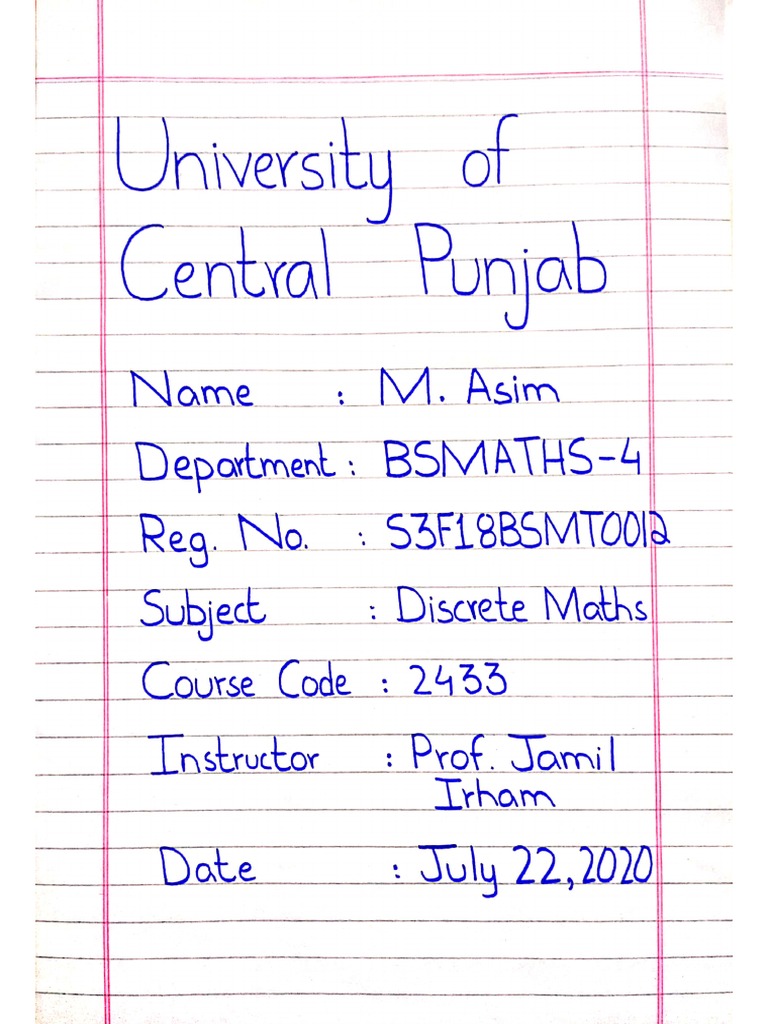 University of
Central Punjab
Name : M. Asim
Department : BSMATHS-4
Reg. No. : S3F18BSMT0012
Subject : Discrete Maths
Course Code : 2433
Instructor : Prof. Jamil
Irham
Date : July 22, 2020